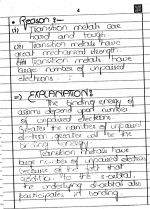 4
• Reason :-
(i) Transition metals are
hard and tough.
(ii) Transition metals have
great mechanical strength.
(iii) Transition metals have
large number of unpaired
electrons.
=) EXPLANATION:
The binding energy of
atoms depend upon number
of unpaired electrons.
Greater the number of unpaired
electron greater will be the
binding energy.
Transition metals have
large number of unpaired electrons
because of the fact that
addition to the s-orbital,
the underlying d-orbital also
participates in bonding.